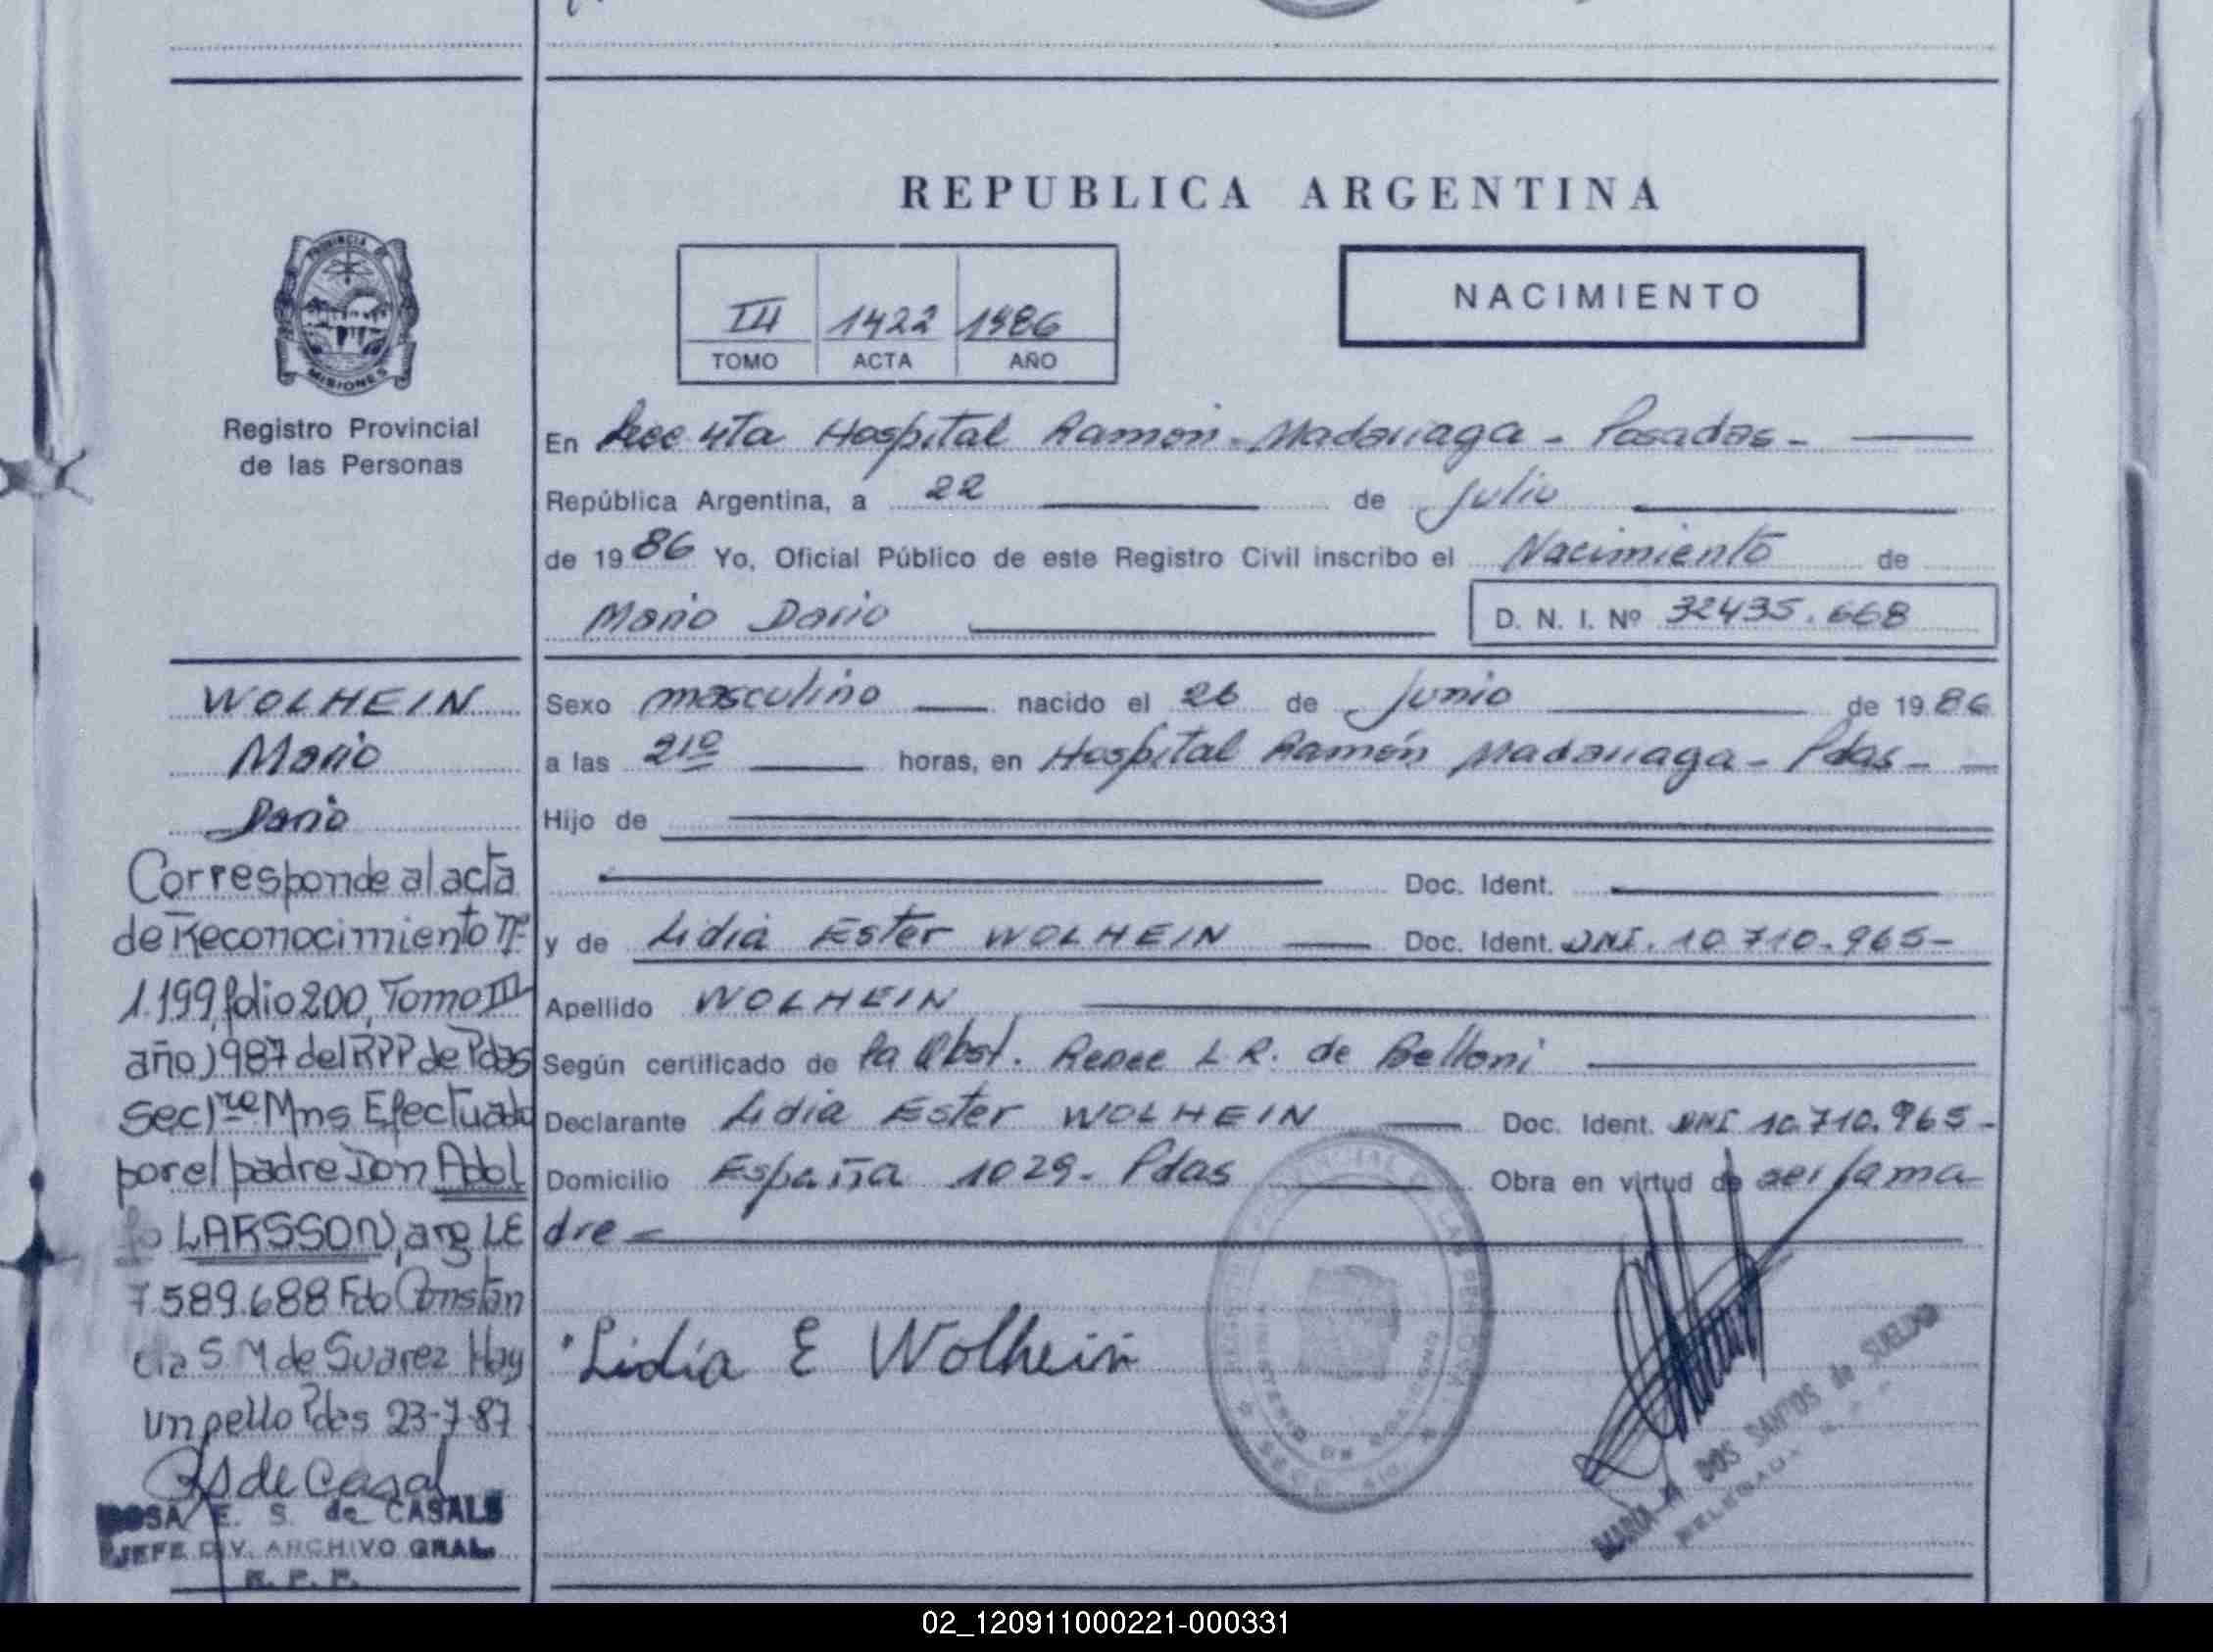 REPUBLICA ARGENTINA
PROVINCIA DE
MISIONES
Registro Provincial
de las Personas
III 1422 1986
TOMO ACTA AÑO
NACIMIENTO
En Secc 4ta Hospital Ramón Madariaga - Posadas -
República Argentina, a 22 de Julio
de 1986 Yo, Oficial Público de este Registro Civil inscribo el Nacimiento de
Mario Dario D. N. I. Nº 32435.668
WOLHEIN
Mario
Dario
Corresponde al acta
de Reconocimiento Nº
1.199, folio 200, Tomo III
año 1987 del RPP de Pdas
Sec 1ra Mns Efectuado
por el padre Don Adol
fo LARSSON, arg LE
7.589.688 Fdo Constan
cia S. M de Suarez Hay
un sello Pdas 23-7-87
RS de Casal
ROSA E. S. de CASALS
JEFE DIV. ARCHIVO GRAL.
R. P. P.
Sexo masculino nacido el 26 de Junio de 1986
a las 21º horas, en Hospital Ramón Madariaga - Pdas -
Hijo de
Doc. Ident.
y de Lidia Ester WOLHEIN Doc. Ident. DNI. 10.710.965-
Apellido WOLHEIN
Según certificado de la Obst. Renee L.R. de Belloni
Declarante Lidia Ester WOLHEIN Doc. Ident. DNI 10.710.965-
Domicilio España 1029- Pdas Obra en virtud de ser la ma
dre -
Lidia E Wolhein
MARIA DOS SANTOS de SUELDO
DELEGADA
02_120911000221-000331